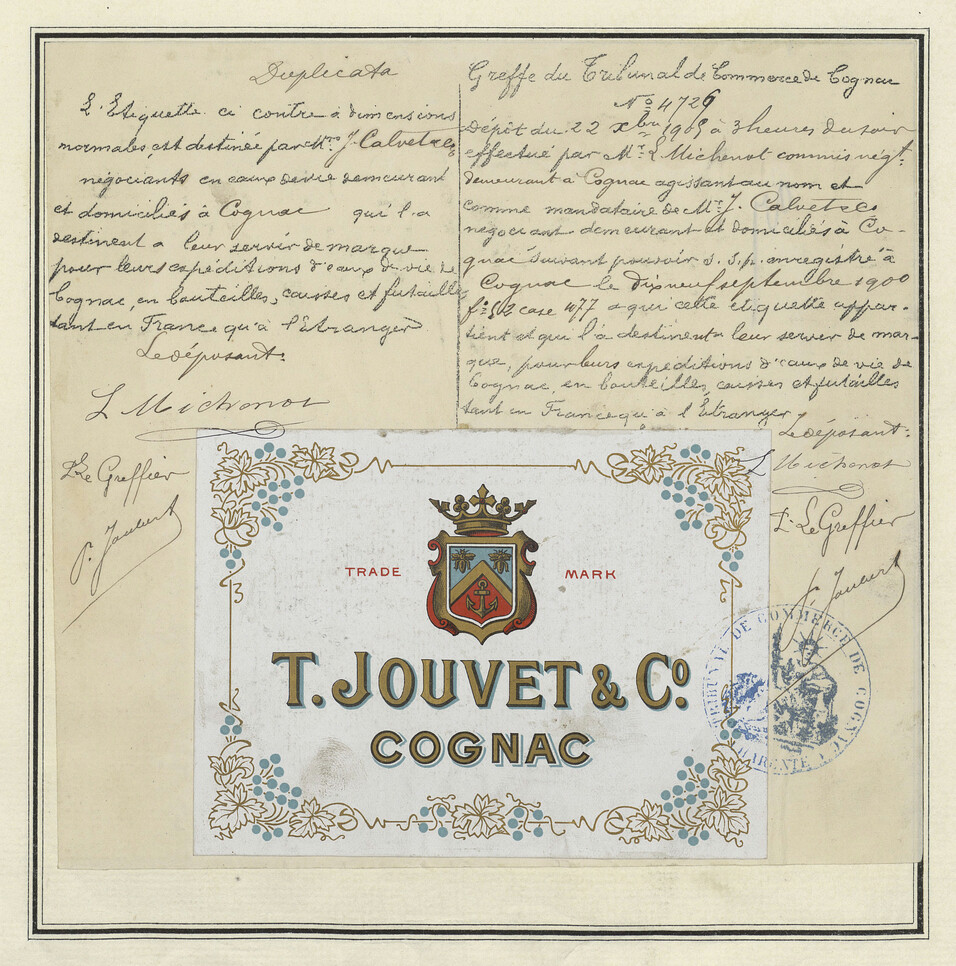 Duplicata
L'Etiquette ci contre à dimensions
normales, est destinée par Mrs J. Calvet & Co
négociants en eaux de vie demeurant
et domiciliés à Cognac qui l'a
destinent a leur servir de marque
pour leurs expéditions d'eaux de vie de
Cognac, en bouteilles, caisses et futailles
tant en France qu'à l'étranger
Le déposant.
L Michenot
Pr Le Greffier
P. Joubert
Greffe du Tribunal de Commerce de Cognac
No 4726
Dépôt du 22 Xbre 1905 à 3 heures du soir
effectué par Mr L Michenot commis négt.
demeurant à Cognac agissant au nom et
comme mandataire de Mrs J. Calvet & Co
négociant demeurant et domiciliés à Co-
gnac suivant pouvoir s. s. p. enregistré à
Cognac le dix neuf septembre 1900
fo 52 case 477 a qui cette etiquette appar-
tient et qui l'a destinent a leur server de mar-
que, pour leurs expéditions d'eaux de vie de
Cognac, en bouteilles, caisses et futailles
tant en France qu'à l'Étranger
Le déposant.
L Michenot
Pr Le Greffier
P. Joubert
TRADE MARK
T. JOUVET & Co.
COGNAC
TRIBUNAL DE COMMERCE DE COGNAC
CHARENTE